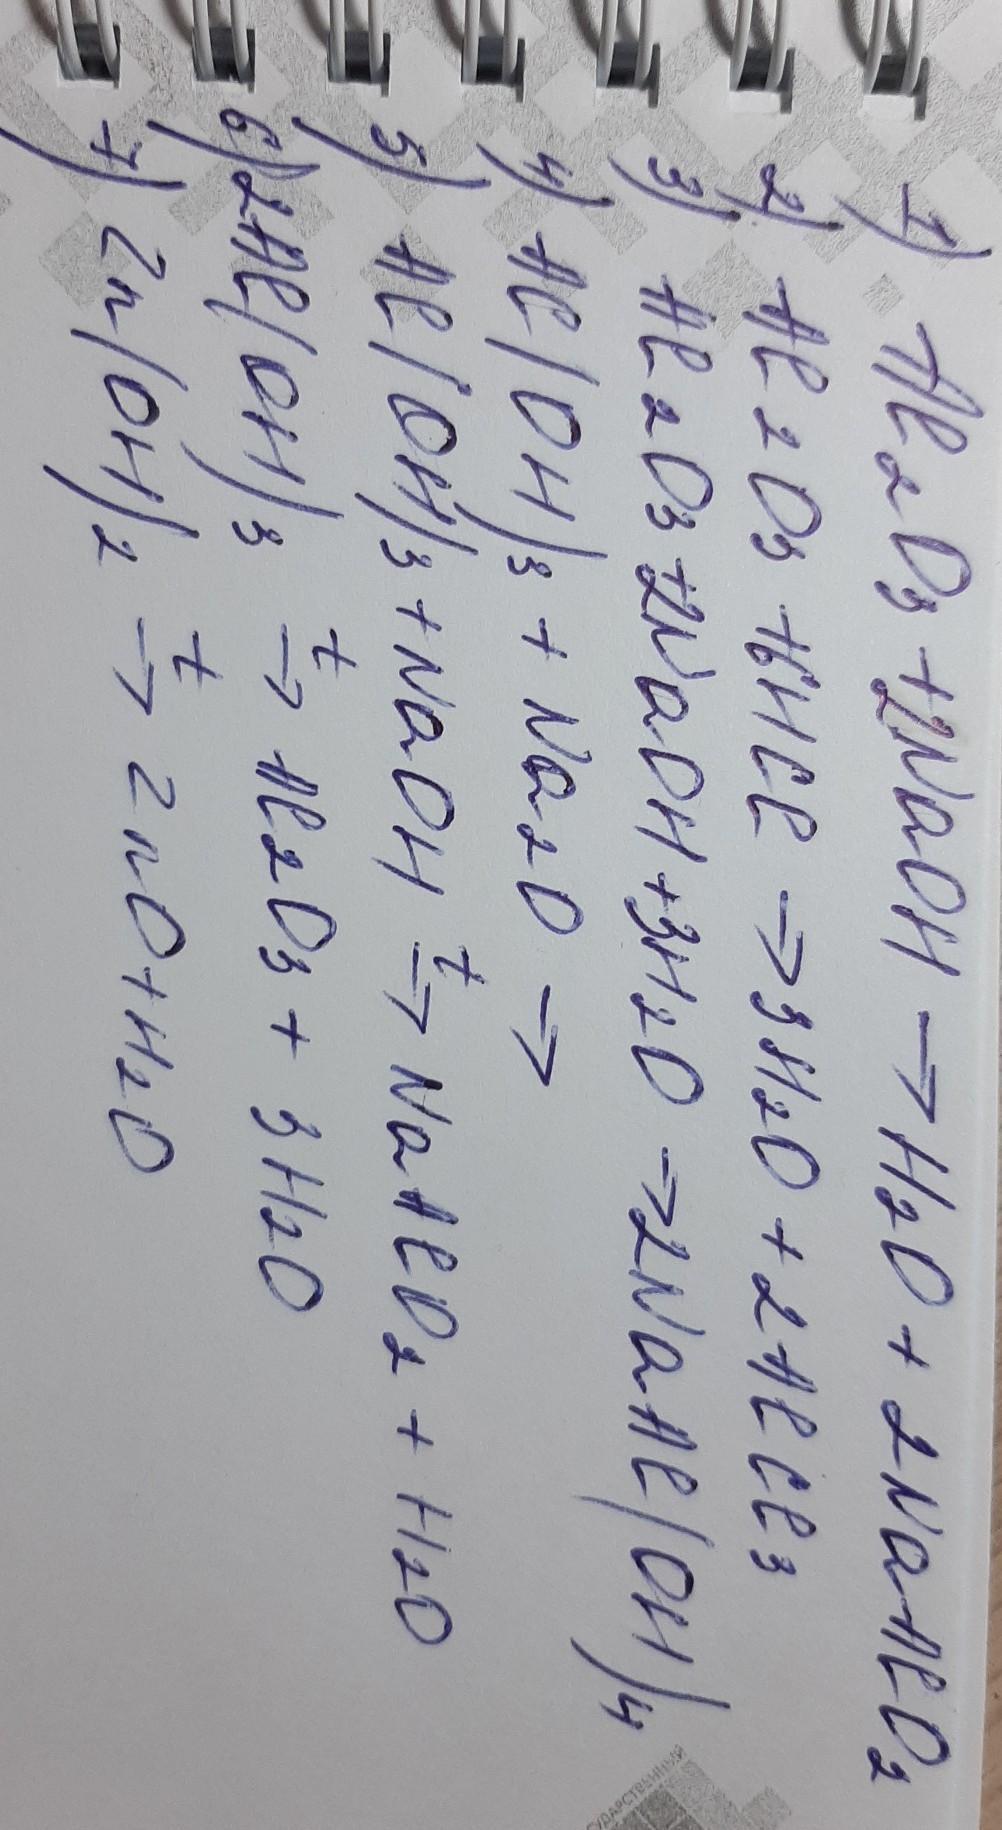 1) Al2O3 + 2NaOH → H2O + 2NaAlO2
2) Al2O3 + 6HCl → 3H2O + 2AlCl3
3) Al2O3 + 2NaOH + 3H2O → 2NaAl(OH)4
4) Al(OH)3 + Na2O →
5) Al(OH)3 + NaOH t→ NaAlO2 + H2O
6) 2Al(OH)3 t→ Al2O3 + 3H2O
7) Zn(OH)2 t→ ZnO + H2O